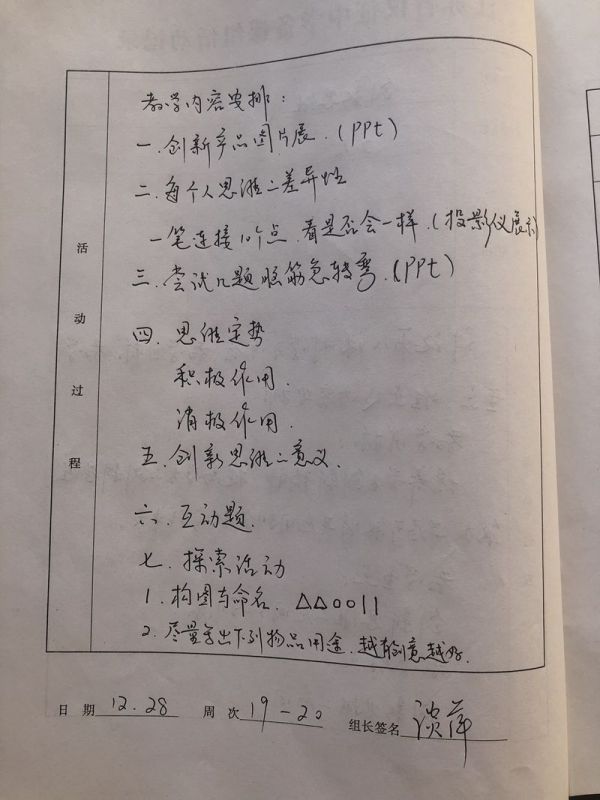 教学内容安排：
一.创新产品图片展.(PPt)
二.每个人思维之差异性
一笔连接10个点.看是否会一样.(投影仪展示)
三.尝试几题脑筋急转弯.(PPt)
四.思维定势
积极作用.
消极作用.
五.创新思维之意义.
六.互动题.
七.探索活动
1.构图与命名. △△○○||
2.尽量写出下列物品用途.越有创意越好.
活动过程
日期 12.28 周次 19-20 组长签名